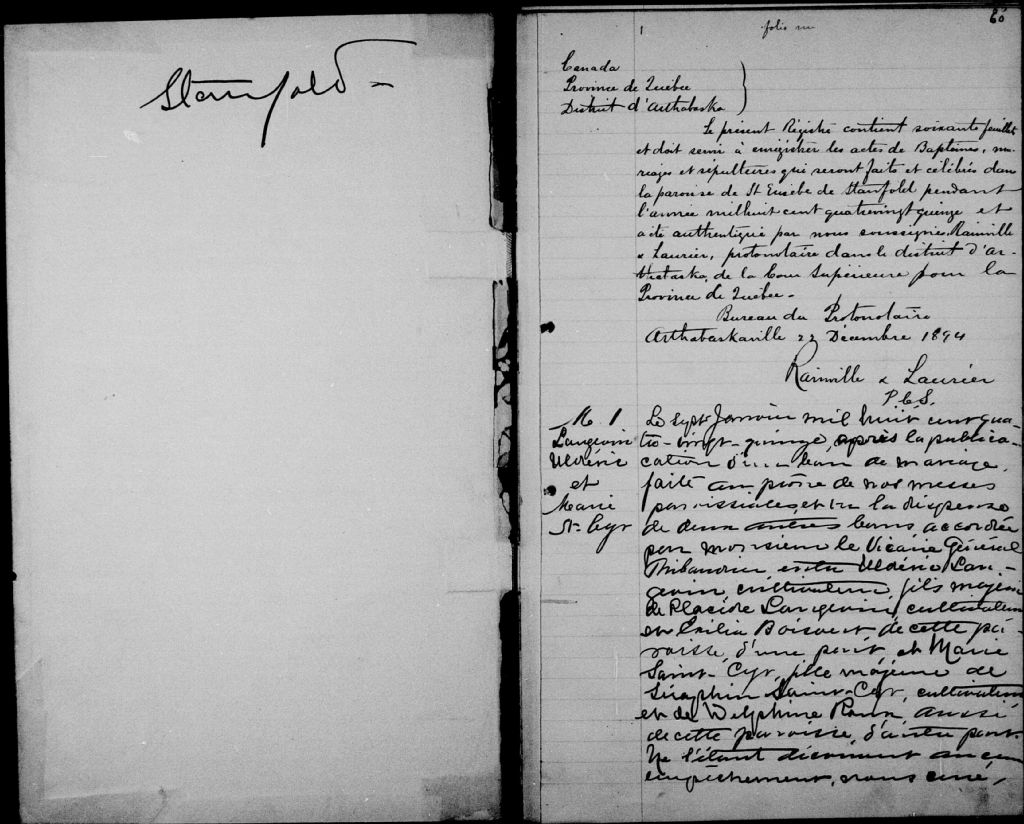 Stanfold
60
folio un
Canada
Province de Québec
District d'Arthabaska
Le présent Régistre contient soixante feuillets
et doit servir à enrégistrer les actes de Baptêmes, ma-
riages et sépultures qui seront faits et célébrés dans
la paroisse de St Eusèbe de Stanfold pendant
l'année mil huit cent quatrevingt quinze et
a été authentiqué par nous soussignés, Rainville
& Laurier, protonotaire dans le district d'Ar-
thabaska, de la Cour Supérieure pour la
Province de Québec.
Bureau du Protonotaire
Arthabaskaville 22 Décembre 1894
Rainville & Laurier
P.C.S.
M. 1
Langevin
Uldéric
et
Marie
St-Cyr
Le sept Janvier mil huit cent qua-
tre-vingt-quinze, après la publica-
cation d'un ban de mariage,
faite au prône de nos messes
paroissiales, et vu la dispense
de deux autres bans, accordée
par monsieur le Vicaire Général
Thibaudier entre Uldéric Lan-
gevin, cultivateur, fils majeur
de Placide Langevin, cultivateur
et Exilia Boisvert, de cette pa-
roisse, d'une part, et Marie
Saint-Cyr, fille majeure de
Séraphin Saint-Cyr, cultivateur
et de Delphine Roux, aussi
de cette paroisse, d'autre part.
Ne s'étant découvert aucun
empêchement, nous curé,